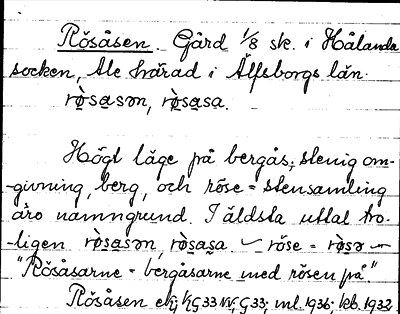 Rösåsen. Gård 1/8 sk. i Hålanda
socken, Ale härad i Älfsborgs län.
rò̠sa̠sən, rò̠sa̠sa.
Högt läge på bergås; stenig om-
-givning, berg, och röse = stensamling
äro namngrund. I äldsta uttal tro-
-ligen rò̠sa̠sən, rò̠sa̠sa – röse = rò̠sə –
"Rösåsarne = bergåsarne med rösen på".
Rösåsen ekj G33; ml. 1936; kb. 1932